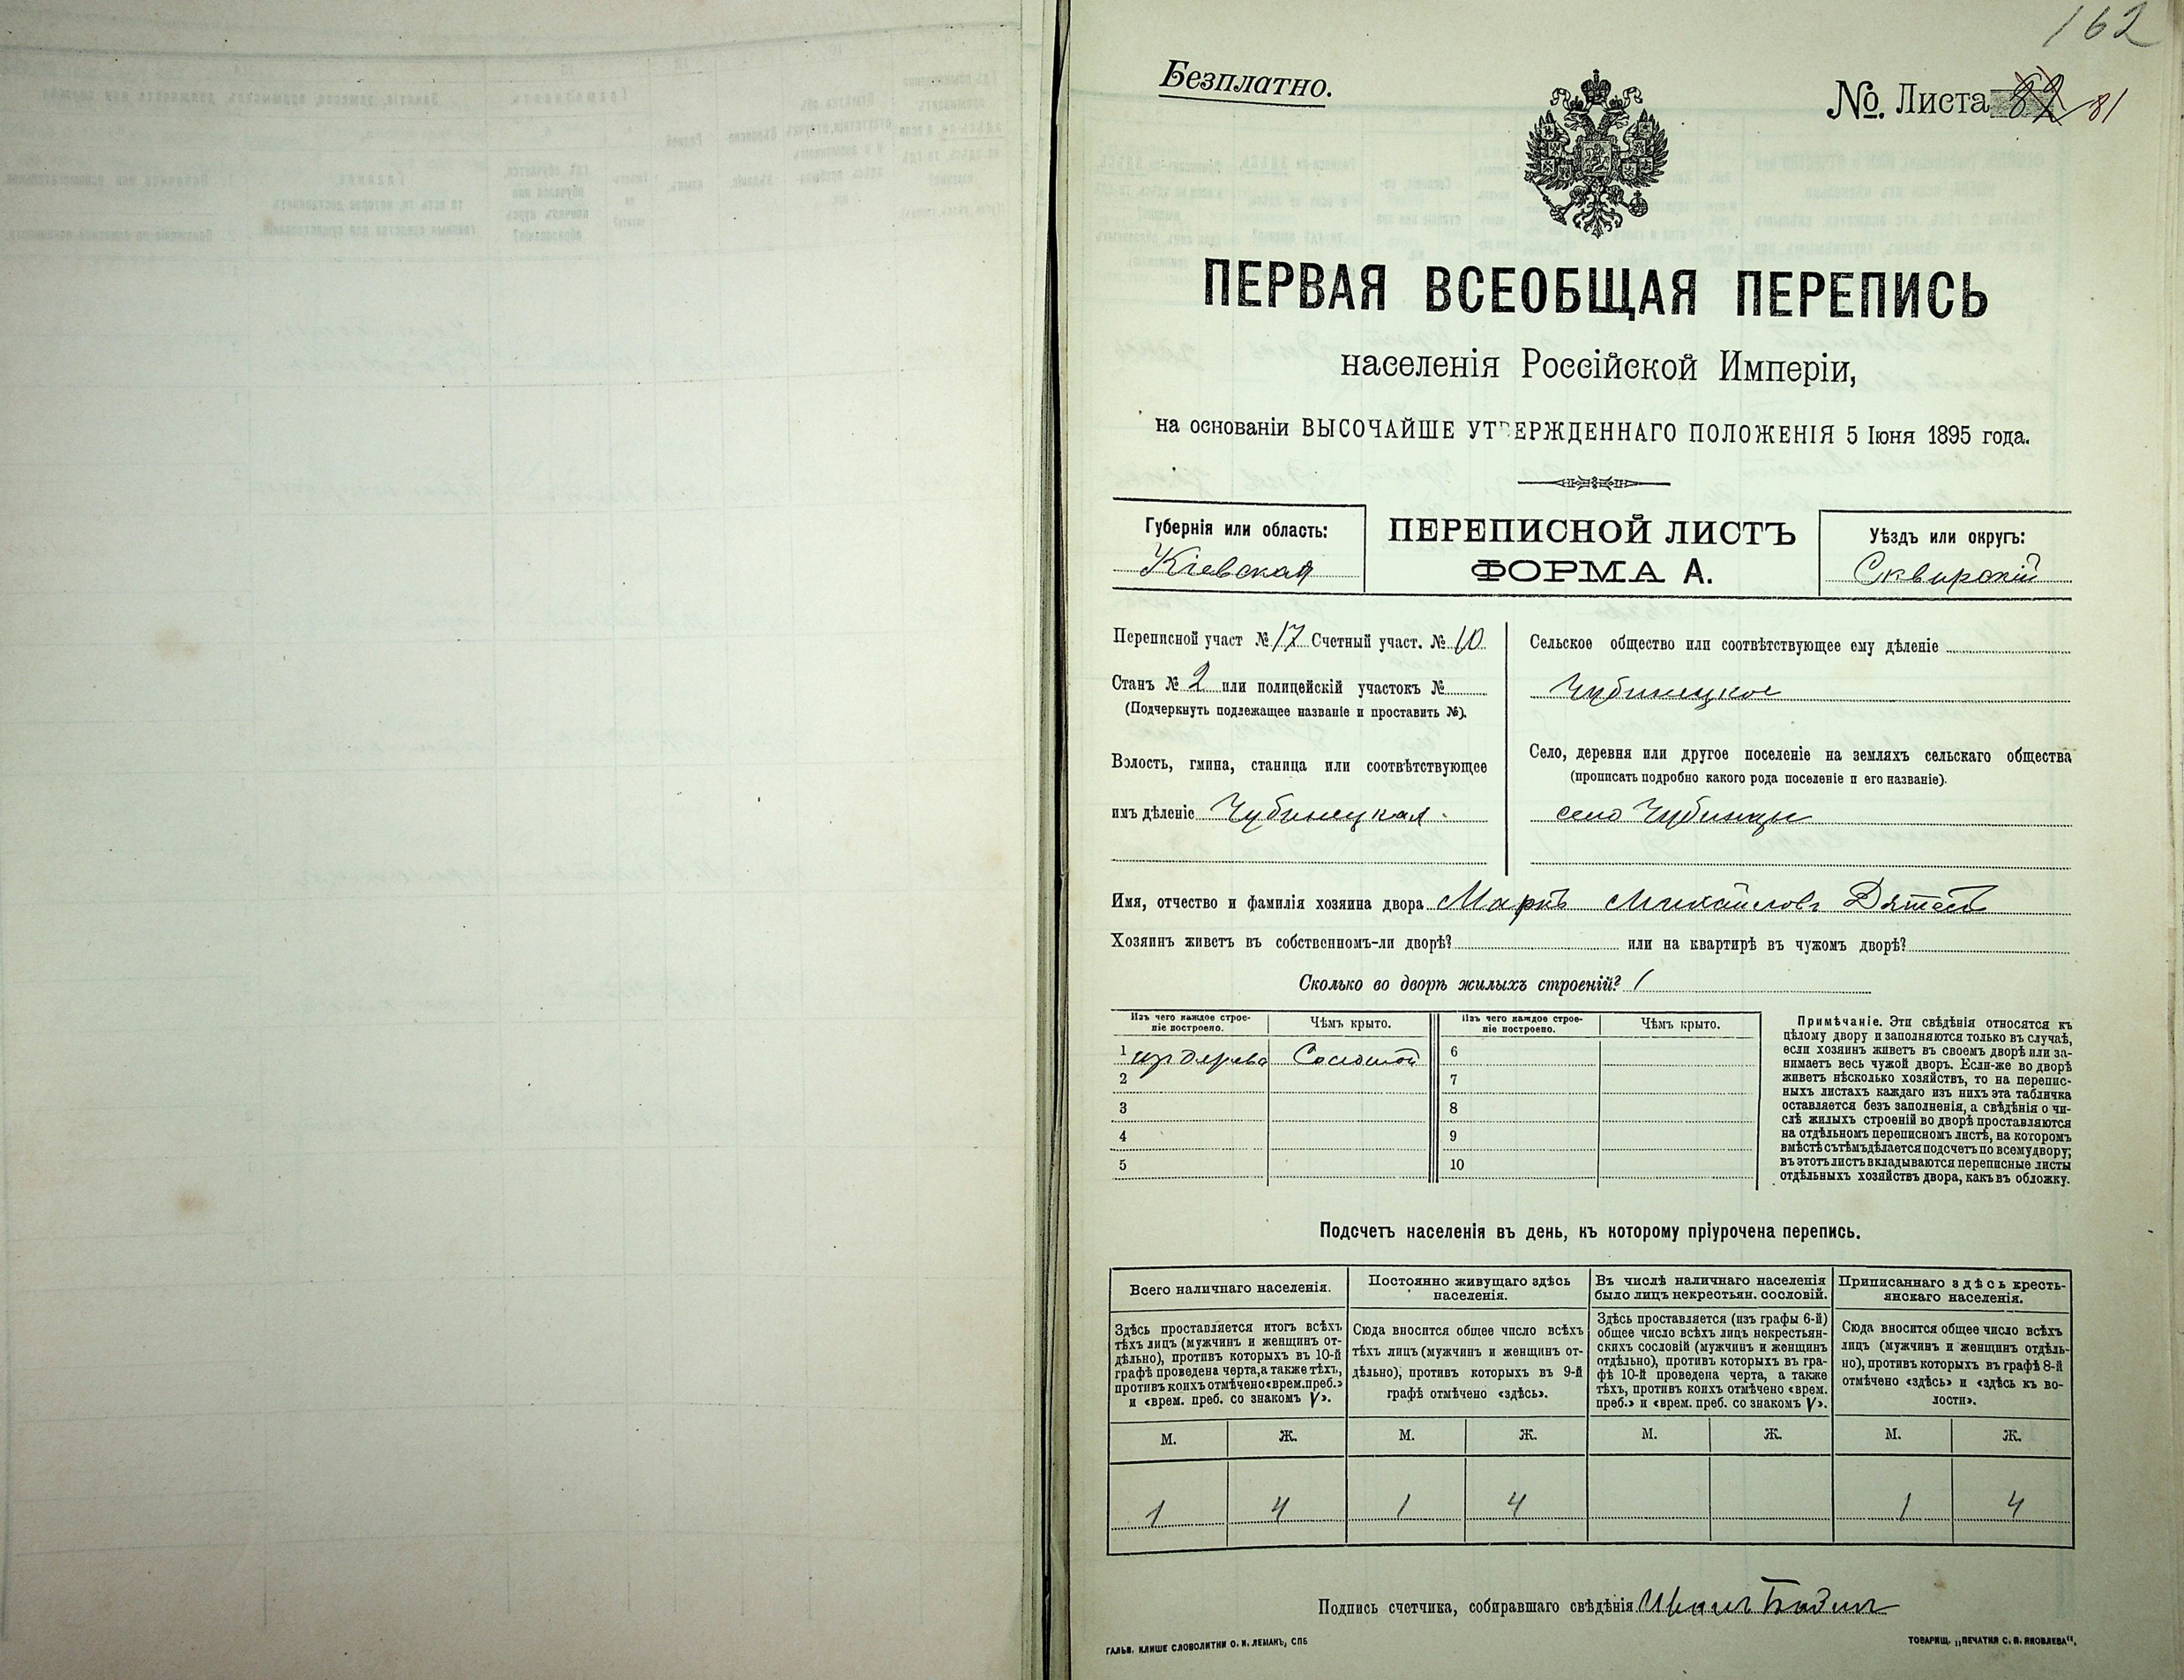 162
Безплатно.
№. Листа 81
ПЕРВАЯ ВСЕОБЩАЯ ПЕРЕПИСЬ
населенія Россійской Имперіи,
на основаніи ВЫСОЧАЙШЕ УТВЕРЖДЕННАГО ПОЛОЖЕНІЯ 5 Іюня 1895 года.
Губернія или область:
Кіевская
ПЕРЕПИСНОЙ ЛИСТЪ
ФОРМА А.
Уѣздъ или округъ:
Сквирскій
Переписной участ № 17 Счетный участ. № 10
Станъ № 2 или полицейскій участокъ №
(Подчеркнуть подлежащее названіе и проставить №).
Волость, гмина, станица или соотвѣтствующее
имъ дѣленіе Чубинецкая
Сельское общество или соотвѣтствующее ему дѣленіе
Чубинецкое
Село, деревня или другое поселеніе на земляхъ сельскаго общества
(прописать подробно какого рода поселеніе и его названіе).
село Чубинцы
Имя, отчество и фамилія хозяина двора Маркъ Михайловъ
Хозяинъ живетъ въ собственномъ-ли дворѣ? или на квартирѣ въ чужомъ дворѣ?
Сколько во дворѣ жилыхъ строеній? 1
Изъ чего каждое строе-
ніе построено.
Чѣмъ крыто.
Изъ чего каждое строе-
ніе построено.
Чѣмъ крыто.
1 изъ дерева Соломой 6
2 7
3 8
4 9
5 10
Примѣчаніе. Эти свѣдѣнія относятся къ
цѣлому двору и заполняются только въ случаѣ,
если хозяинъ живетъ въ своемъ дворѣ или за-
нимаетъ весь чужой дворъ. Если-же во дворѣ
живетъ нѣсколько хозяйствъ, то на перепис-
ныхъ листахъ каждаго изъ нихъ эта табличка
оставляется безъ заполненія, а свѣдѣнія о чи-
слѣ жилыхъ строеній во дворѣ проставляются
на отдѣльномъ переписномъ листѣ, на которомъ
вмѣстѣ съ тѣмъ дѣлается подсчетъ по всему двору;
въ этотъ листъ вкладываются переписные листы
отдѣльныхъ хозяйствъ двора, какъ въ обложку.
Подсчетъ населенія въ день, къ которому пріурочена перепись.
Всего наличнаго населенія.
Здѣсь проставляется итогъ всѣхъ
тѣхъ лицъ (мужчинъ и женщинъ от-
дѣльно), противъ которыхъ въ 10-й
графѣ проведена черта, а также тѣхъ,
противъ коихъ отмѣчено «врем. преб.»
и «врем. преб. со знакомъ V».
Постоянно живущаго здѣсь
населенія.
Сюда вносится общее число всѣхъ
тѣхъ лицъ (мужчинъ и женщинъ от-
дѣльно), противъ которыхъ въ 9-й
графѣ отмѣчено «здѣсь».
Въ числѣ наличнаго населенія
было лицъ некрестьян. сословій.
Здѣсь проставляется (изъ графы 6-й)
общее число всѣхъ лицъ некрестьян-
скихъ сословій (мужчинъ и женщинъ
отдѣльно), противъ которыхъ въ гра-
фѣ 10-й проведена черта, а также
тѣхъ, противъ коихъ отмѣчено «врем.
преб.» и «врем. преб. со знакомъ V».
Приписаннаго здѣсь кресть-
янскаго населенія.
Сюда вносится общее число всѣхъ
лицъ (мужчинъ и женщинъ отдѣль-
но), противъ которыхъ въ графѣ 8-й
отмѣчено «здѣсь» и «здѣсь къ во-
лости».
М. Ж. М. Ж. М. Ж. М. Ж.
1 4 1 4 1 4
Подпись счетчика, собиравшаго свѣдѣнія
ГАЛЬВ. КЛИШЕ СЛОВОЛИТНИ О. И. ЛЕМАНЪ, СПБ
ТОВАРИЩ. „ПЕЧАТНЯ С. П. ЯКОВЛЕВА“.